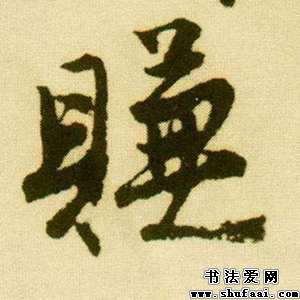 賺
书法爱网
www.shufaai.com